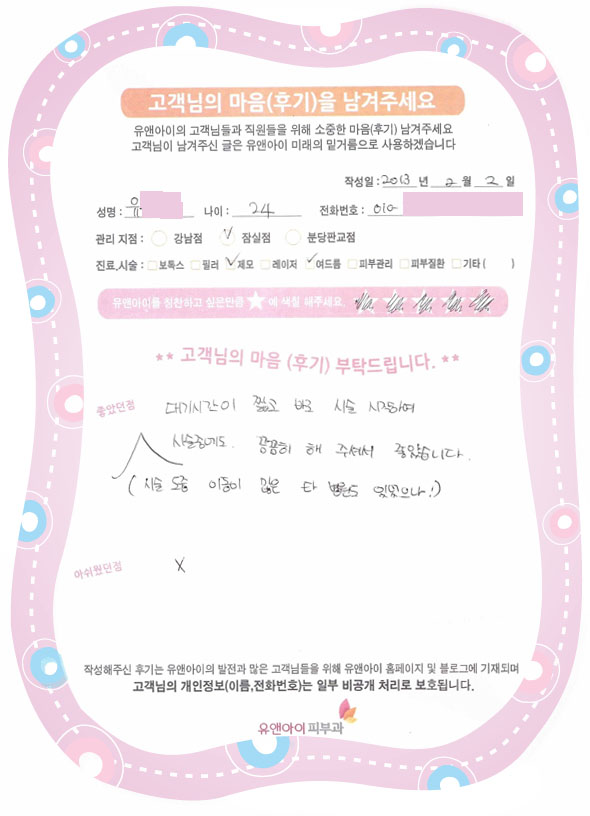 고객님의 마음(후기)을 남겨주세요
유앤아이의 고객님들과 직원들을 위해 소중한 마음(후기) 남겨주세요
고객님이 남겨주신 글은 유앤아이 미래의 밑거름으로 사용하겠습니다
작성일 : 2013 년 2 월 2 일
성명 : 나이 : 24 전화번호 : 010
관리 지점 : 강남점 잠실점 분당판교점
진료,시술 : 보톡스 필러 제모 레이저 여드름 피부관리 피부질환 기타 ( )
유앤아이를 칭찬하고 싶은만큼 ★ 에 색칠 해주세요.
** 고객님의 마음 (후기) 부탁드립니다. **
좋았던점 대기시간이 짧고 바로 시술 시작하여
시술중에도. 꼼꼼히 해 주셔서 좋았습니다.
(시술 도중 이동이 많은 타 병원도 있었으나!)
아쉬웠던점 X
작성해주신 후기는 유앤아이의 발전과 많은 고객님들을 위해 유앤아이 홈페이지 및 블로그에 기재되며
고객님의 개인정보(이름,전화번호)는 일부 비공개 처리로 보호됩니다.
유앤아이피부과